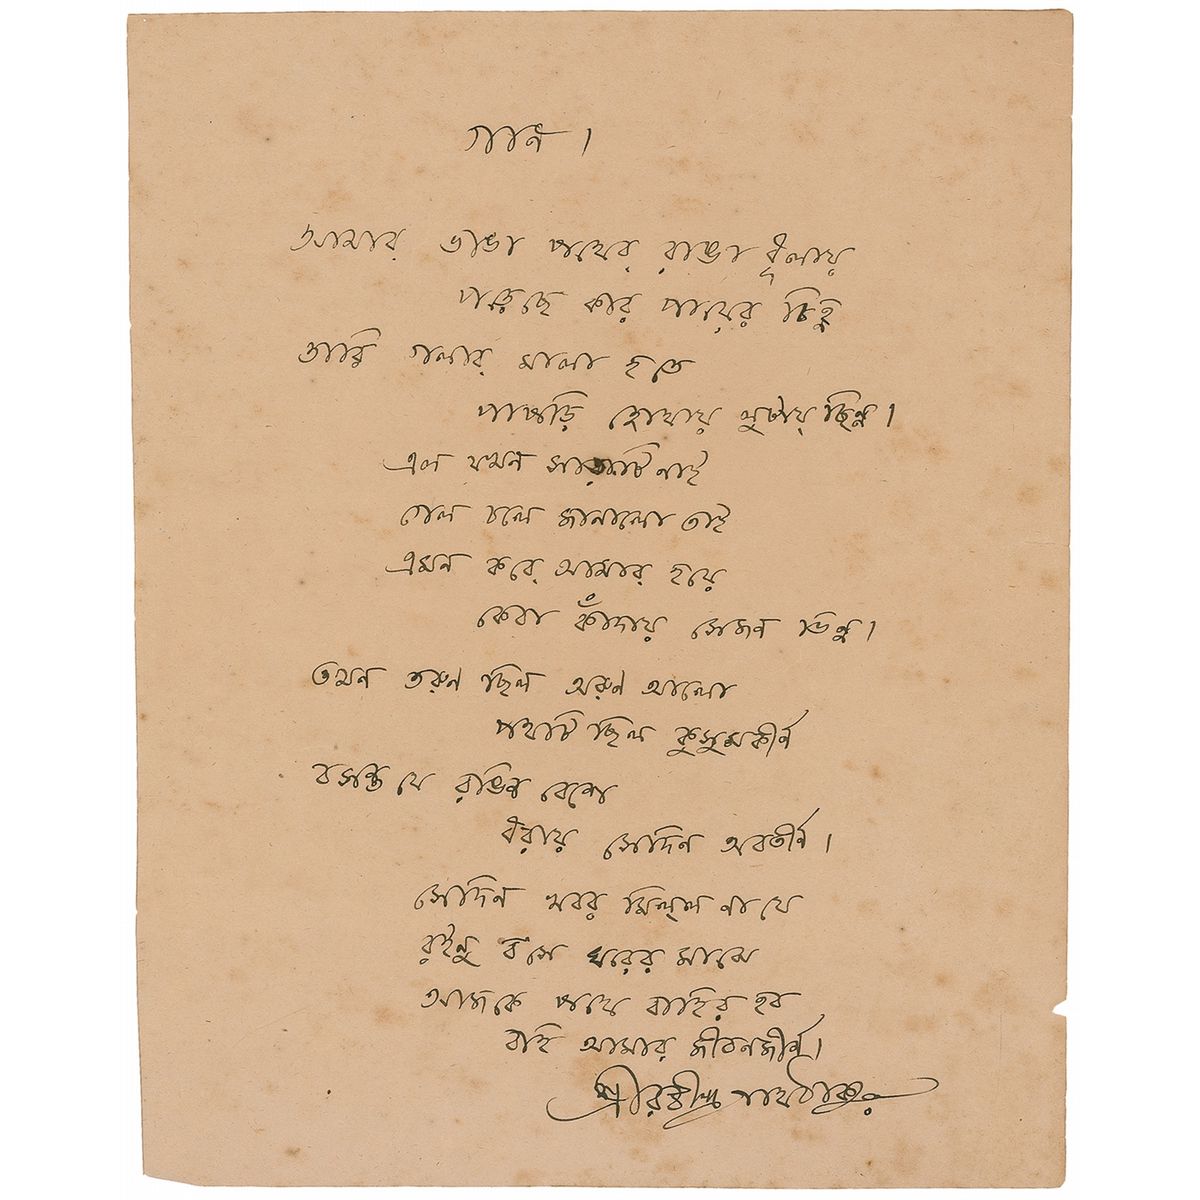 গান।
আমার ভাঙা পথের রাঙা ধূলায়
পড়েছে কার পায়ের চিহ্ন
তারি গলার মালা হতে
পাপড়ি হোথায় লুটায় ছিন্ন।
এল যখন সাড়াটি নাই
গেল চলে জানালো তাই
এমন করে আমার হায়ে
কেবা কাঁদায় সেজন ভিন্ন।
তখন তরুণ ছিল অরুণ আলো
পথটি ছিল কুসুমকীর্ণ
বসন্ত যে রঙিন বেশে
ধরায় সেদিন অবতীর্ণ।
সেদিন খবর মিলল না যে
রইনু বসে ঘরের মাঝে
আজকে পথে বাহির হব
বহি আমার জীবনজীর্ণ।
শ্রীরবীন্দ্রনাথ ঠাকুর